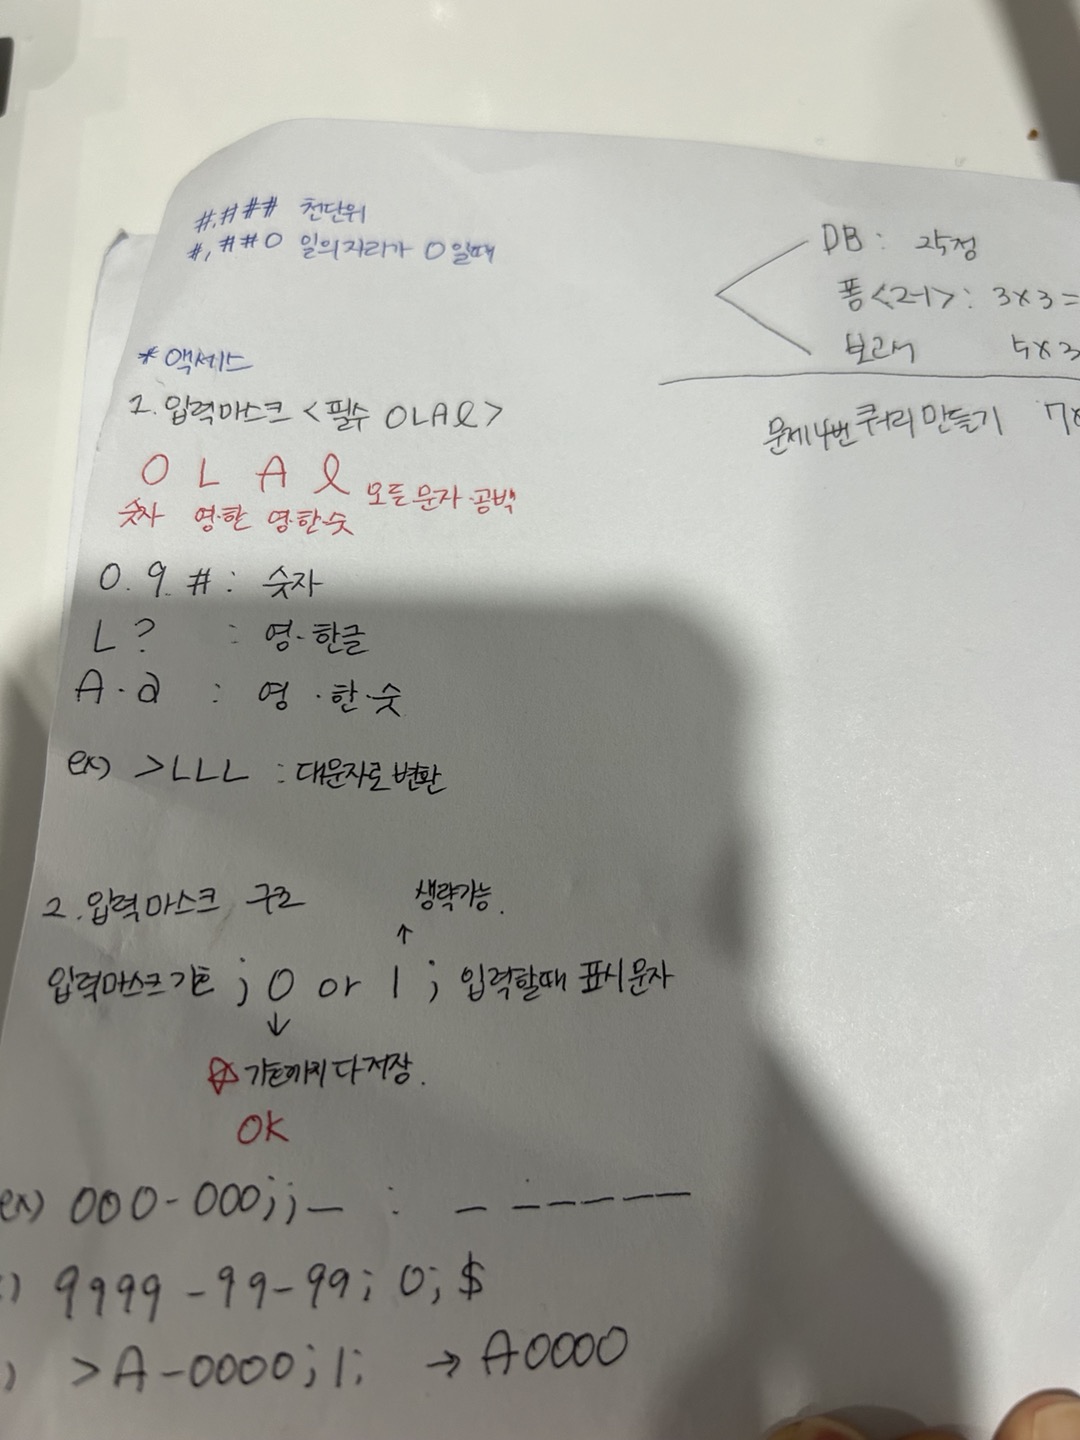 #,### 천단위
#,##0 일의자리가 0일때
DB : 25점
폼<2-1> : 3x3=
보고서 5x3
문제4번 쿼리 만들기 7x
* 액세스
1. 입력마스크 <필수 0LA&>
0 L A & 모든문자·공백
숫자 영·한 영·한·숫
0. 9. # : 숫자
L ? : 영·한글
A·a : 영·한·숫
ex) >LLL : 대문자로 변환
2. 입력마스크 구조
생략가능.
↑
입력마스크기호 ; 0 or 1 ; 입력할때 표시문자
↓
☆ 기호까지 다 저장.
OK
ex) 000-000;;_ : _ ------
) 9999-99-99; 0; $
) >A-0000;1; → A0000